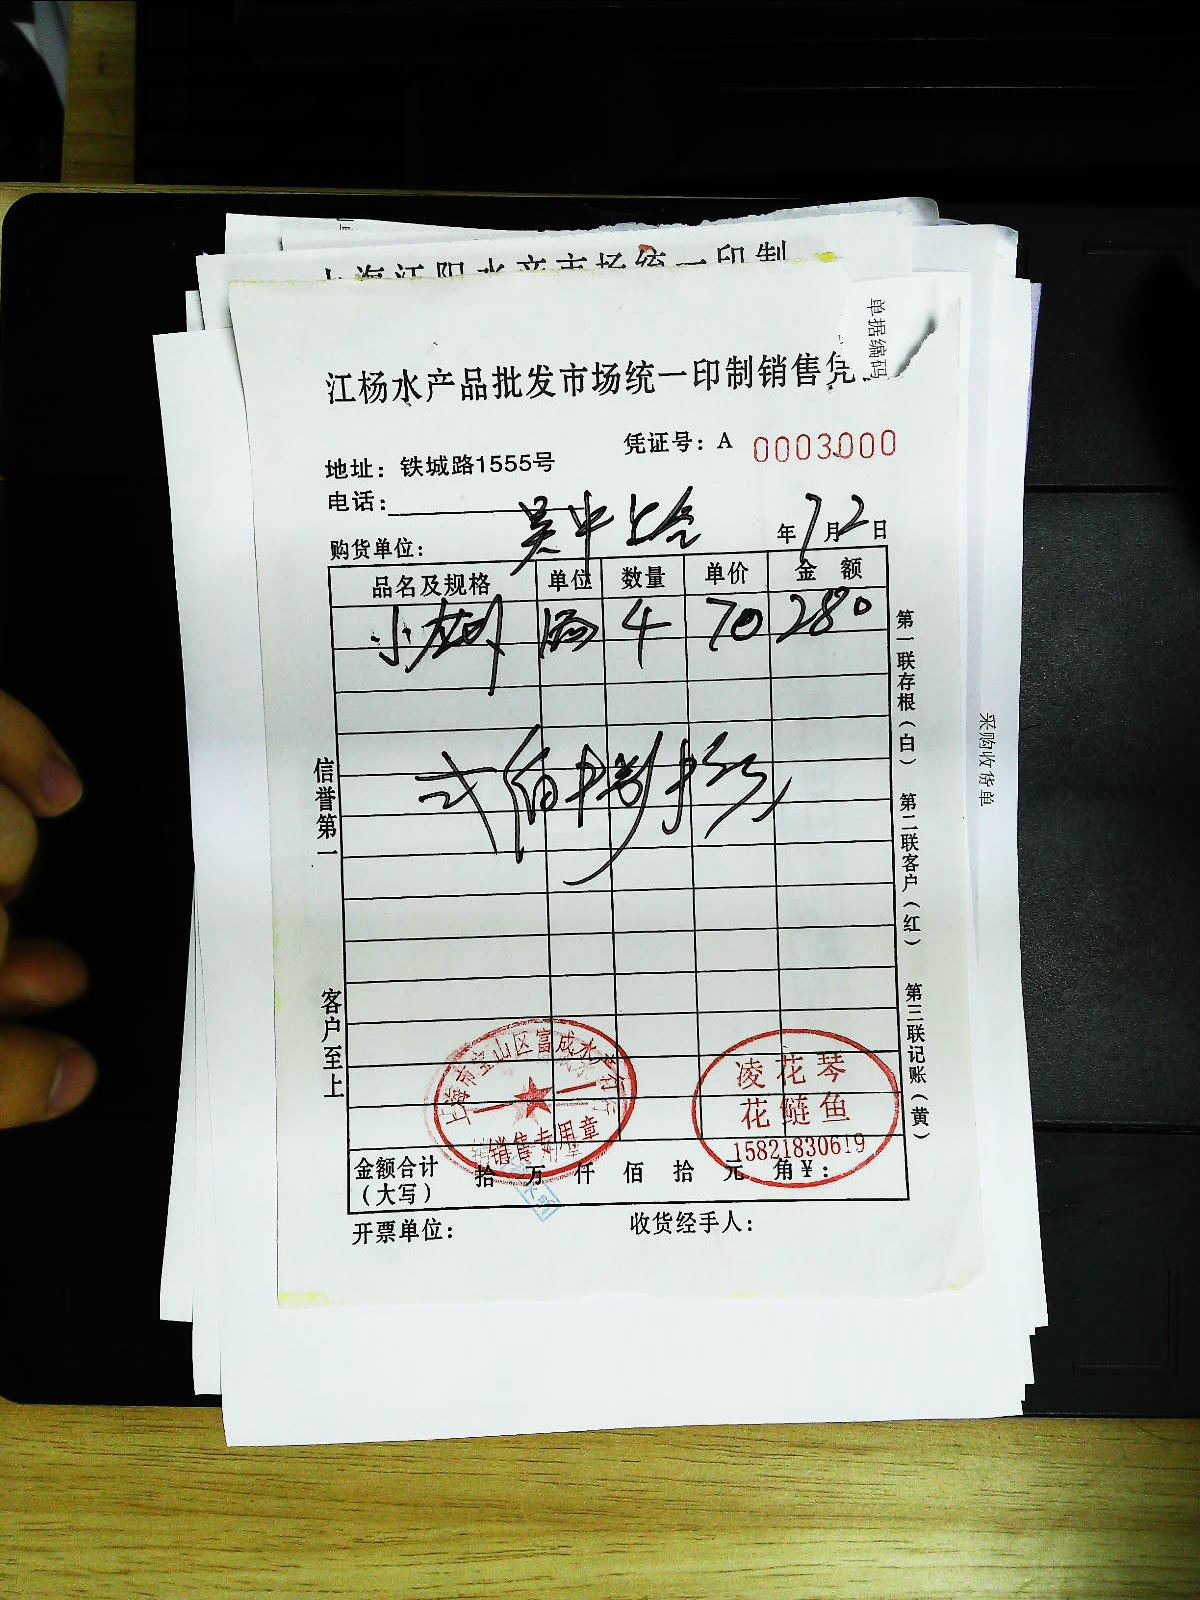 江杨水产品批发市场统一印制销售凭
单据编码
凭证号：A 0003000
地址：铁城路1555号
电话：
购货单位： 吴中上仓 年7月2日
品名及规格 单位 数量 单价 金额
小 4 70 280
弍佰捌拾元
信誉第一
客户至上
第一联存根（白） 第二联客户（红） 第三联记账（黄）
采购收货单
上海市宝山区富成水产行
销售专用章
凌花琴
花鲢鱼
15821830619
金额合计（大写） 拾 万 仟 佰 拾 元 角￥：
开票单位： 收货经手人：